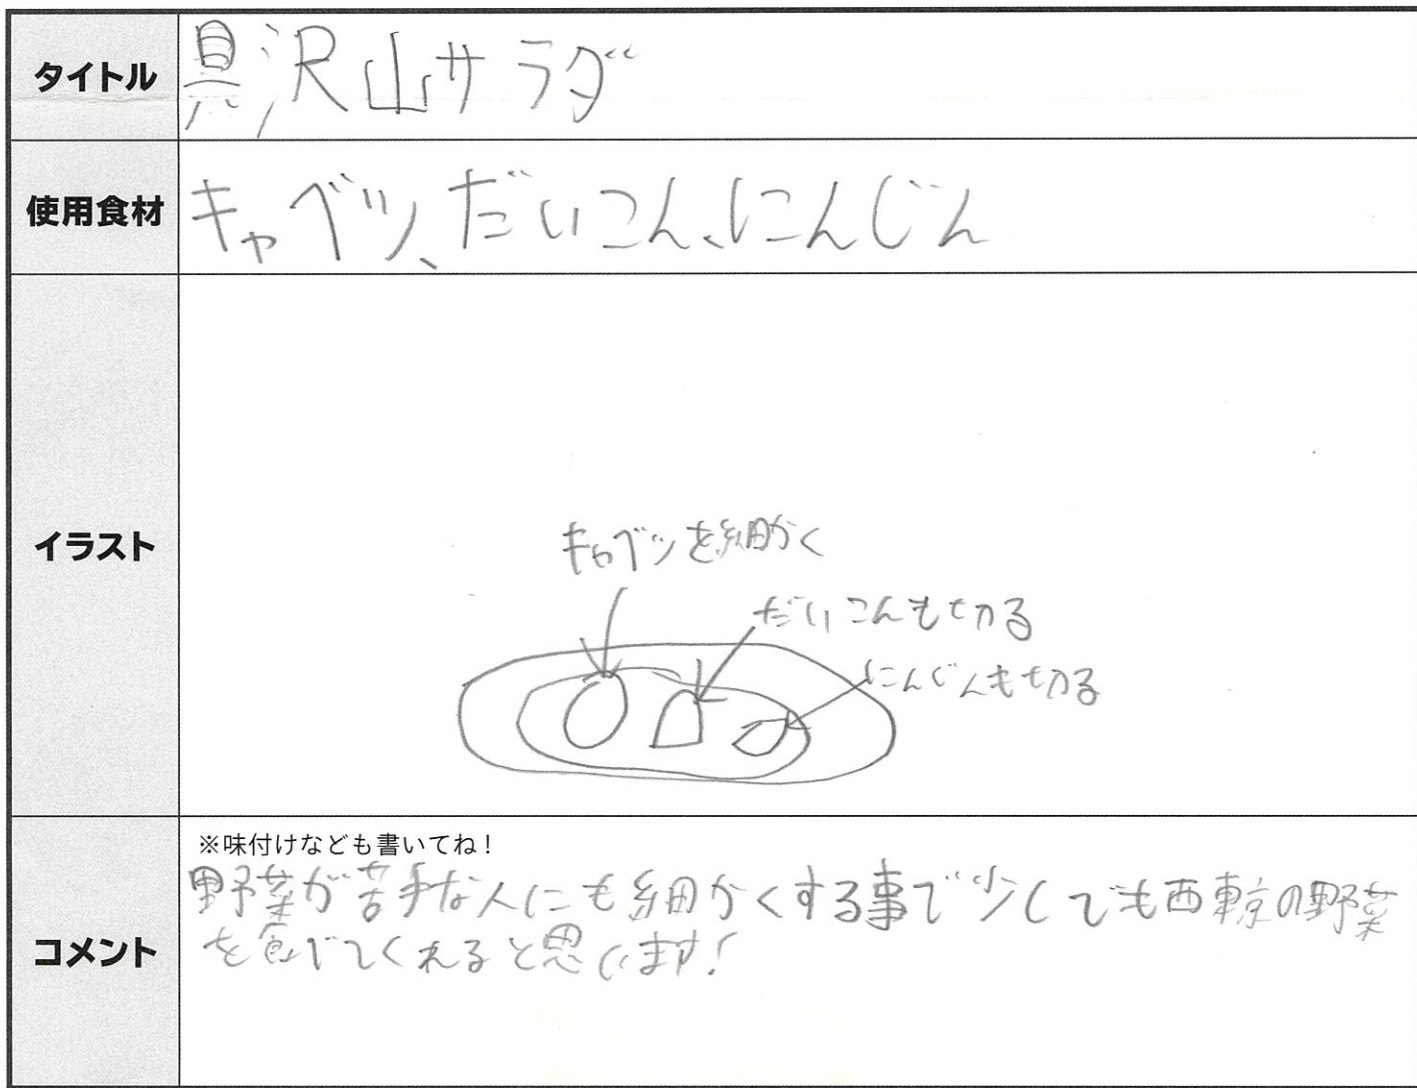 タイトル
具沢山サラダ
使用食材
キャベツ、だいこん、にんじん
イラスト
キャベツを細かく
だいこんも切る
にんじんも切る
コメント
※味付けなども書いてね！
野菜が苦手な人にも細かくする事で少しでも西東京の野菜
を食べてくれると思います！